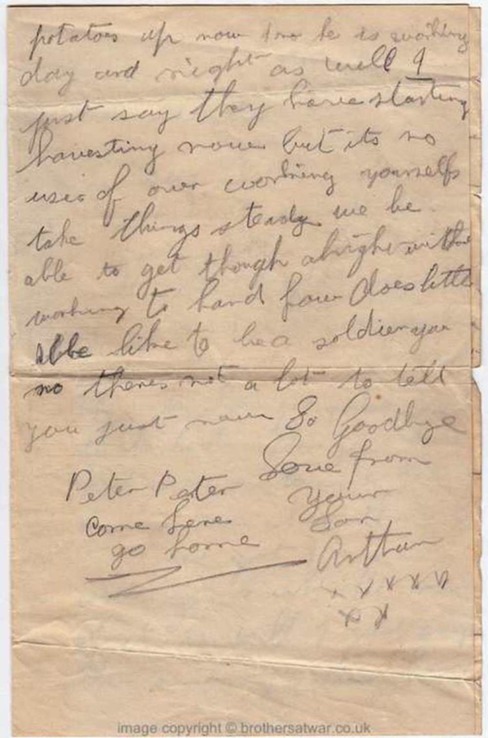 potatoes up now & he is working
day and night as well I
just say they have starting
harvesting now but its no
use of over working yourselfs
take things steady we be
able to get though alright without
working to hard how does little
like to be a soldier you
no theres not a lot to tell
you just now So Goodbye
Love from
your
Son
Arthur
x x x x x
x x
Peter Peter
come here
go home
image copyright © brothersatwar.co.uk